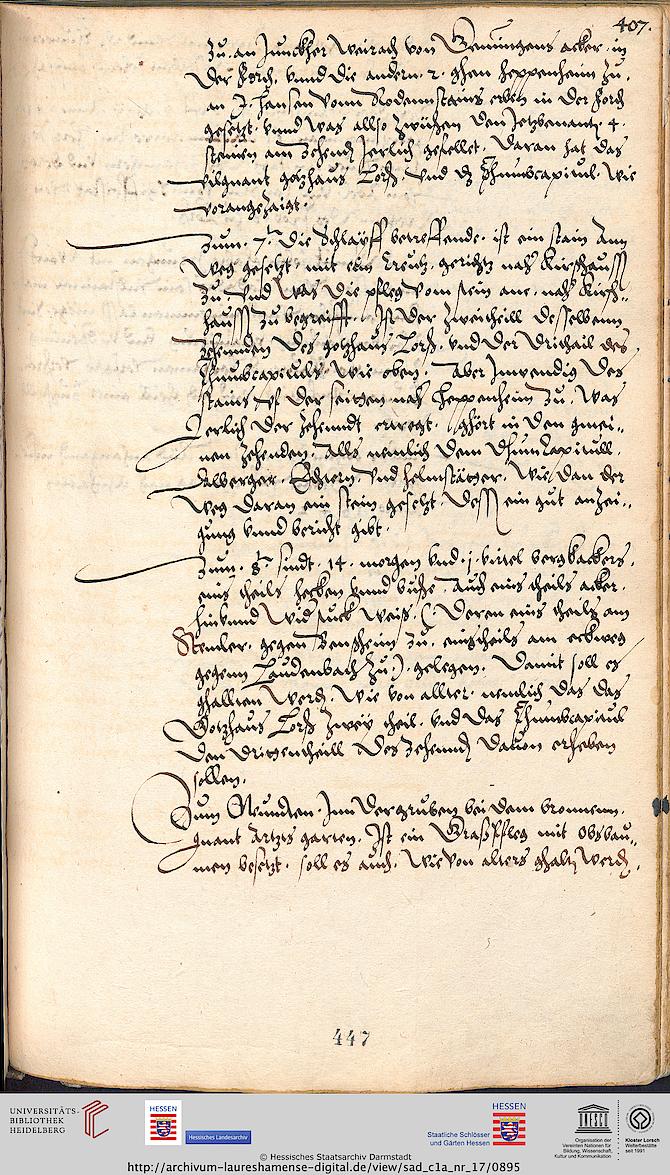 407.
zu. an Junckher Weirach von Gemingens acker. in
der Forch. vnnd die andern. 2. ghen Heppenheim zu.
an J. Hansen vonn Rodennstains erben in der Forch
gesetzt. vnnd was allso zwüschen den Jetzbenantẽ 4.
steinen am Zehendẽ Jerlich gefellet. Daran hat das
vilgnant gotzhaus Lorsch. vnd dz Thumbcapitul. wie
vorangezaigt.
Zum. 7. die Schlayff betreffende. ist ein stain Am
Weg gesetzt mit eim Creutz. gerichtz nach Kirschhauss
zu. Vnd was die pfleg vom stein ane. nach Kirsch-
hauss zu begreifft. Ist der Zweitheill desselbenn
Zehennden des gotzhaus Lorsch. vnd der Dritthail des
Thumbcapituls. wie oben. Aber Inwendig des
stains vf der seitten nach Heppenheim zu. was
Jerlich der Zehenndt ertregt. ghört in den gmei-
nen Zehenden. Alls nemlich dem Thumcapitull.
Dalberger. Echtern. vnd Helmstätter. wie dan der
weg daran ein stein gesetzt. dess ein gut anzei-
gung vnnd bericht gibt.
Zum. 8. sindt. 14. morgen vnd. j. virtel bergkackers.
eins theils hecken vnnd büsche. auch eins theils acker.
hin vnnd wid stuck weiss. (Deren eins theils am
Stemler. gegen Bensheim zu. einstheils am eckweg
gegenn Laudenbach zu.) gelegen. Damit soll es
ghallten werdẽ. wie von allter. nemlich das das
Gotzhaus Lorsch zwey theil. vnd das Thumbcapitul
den Drittentheill des Zehenndẽ dauon erheben
sollen.
Zum Neundten. Im der gruben bei dem bronnenn.
gnant Artzts garten. Ist ein Grassfleg mit Obsbau-
men besetzt. soll es auch. wie von alters ghaltẽ werdẽ.
447
UNIVERSITÄTS-
BIBLIOTHEK
HEIDELBERG
HESSEN
Hessisches Landesarchiv
Staatliche Schlösser
und Gärten Hessen
HESSEN
UNESCO
Organisation der
Vereinten Nationen für
Bildung, Wissenschaft,
Kultur und Kommunikation
Kloster Lorsch
Welterbestätte
seit 1991
© Hessisches Staatsarchiv Darmstadt
http://archivum-laureshamense-digital.de/view/sad_c1a_nr_17/0895